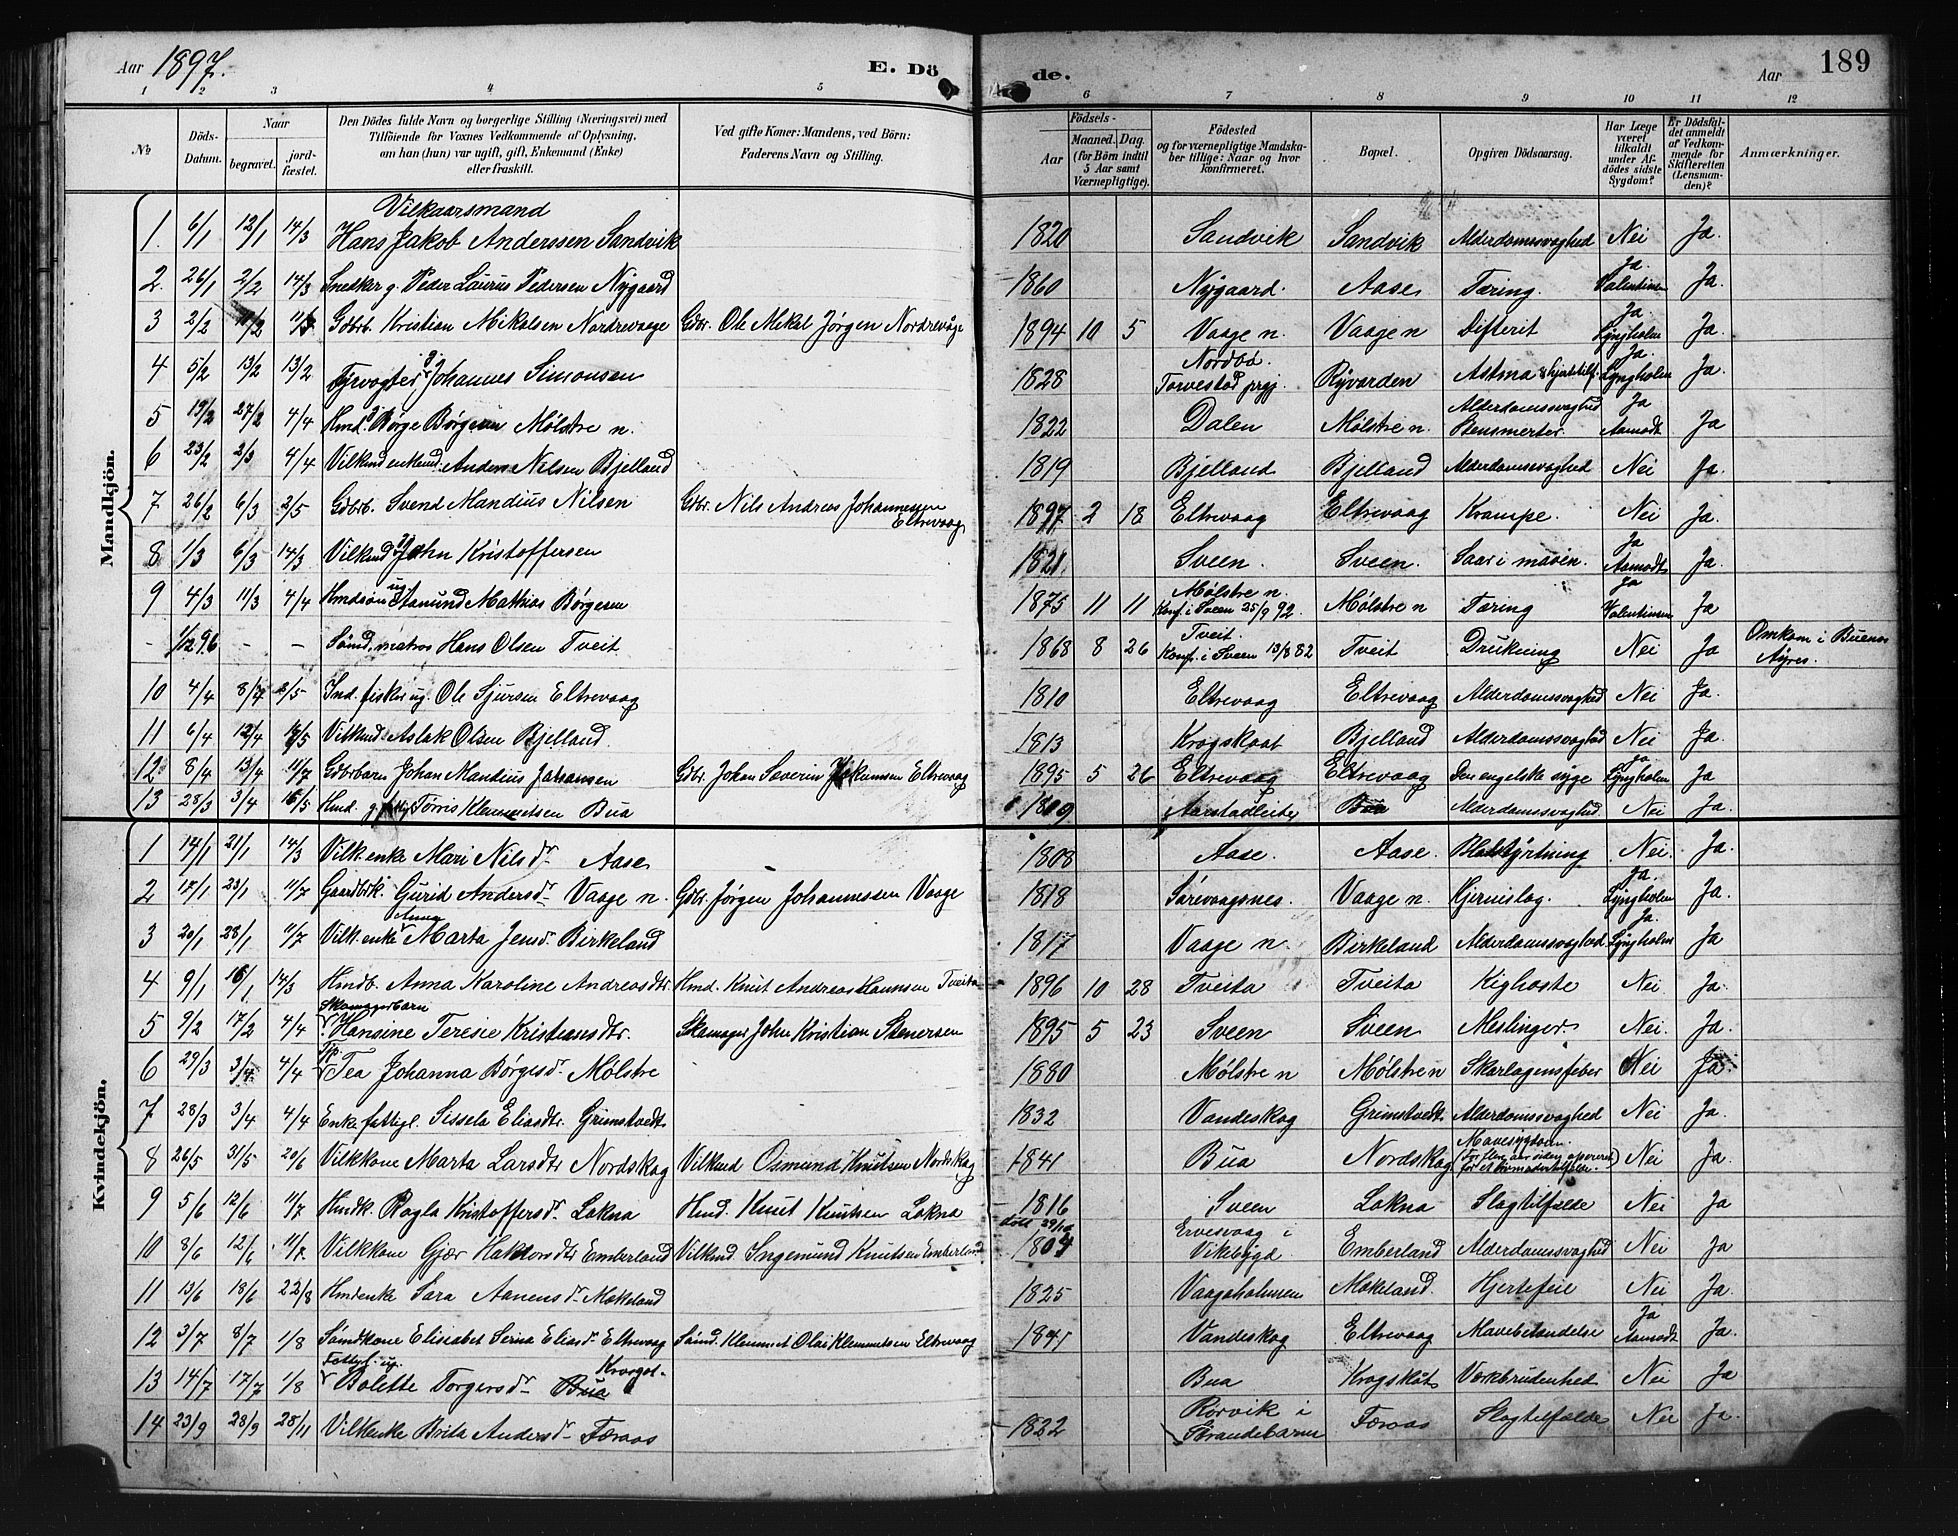 Aar 1897. E. Dö de. Aar 189
1 2 3 4 5 6 7 8 9 10 11 12
No Döds-Datum. Naar begravet. jord-fæstet. Den Dödes fulde Navn og borgerlige Stilling (Næringsvei) med Tilföiende for Voxnes Vedkommende af Oplysning, om han (hun) var ugift, gift, Enkemand (Enke) eller fraskilt. Ved gifte Koner: Mandens, ved Börn: Faderens Navn og Stilling. Födsels- Aar Maaned. Dag. (for Börn indtil 5 Aar samt Værnepligtige). Födested og for værnepligtige Mandskaber tillige: Naar og hvor konfirmeret. Bopæl. Opgiven Dödsaarsag. Har Læge været tilkaldt under Afdödes sidste Sygdom? Er Dödsfaldet anmeldt af Vedkommende for Skifteretten (Lensmanden)? Anmærkninger.
Mandkjön.
Vilkaarsmand
1. 6/1 12/1 14/3 Hans Jakob Anderssen Sandvik 1820 Sandvik Sandvik Alderdomssvaghed Nei Ja.
2. 26/1 2/2 14/3 Snekker g. Peder Laurus Pedersen Nygaard 1860 Nygaard. Aase Tæring. Ja. Valentinsen Ja.
3 2/2 11/2 Gdbrb. Kristian Mikalsen Nordrevaage Gbr. Ole Mikal Jørgen Nordrevåge 1894 10 5 Vaage n. Vaage n Difterit Ja. Lyngholm Ja.
4 5/2 13/2 13/2 Fyrvogter g. Johannes Simonsen 1828 Nordbø. Torvestad prgj. Ryvarden Astma & hjertetilf. Ja. Lyngholm Ja.
5 19/2 27/2 4/4 Hmd. g. Børge Børgesen Mølstre n. 1822 Dalen Mølstre n. Alderdomssvaghed Stensmerter. Ja Aamodt Ja
6 23/2 2/3 4/4 Vilkmd enkemd. Anders Nilsen Bjelland 1819 Bjelland Bjelland Alderdomssvaghed Nei Ja.
7 26/2 6/3 2/5 Gdbrb. Svend Mandius Nilsen Gbr. Nils Andreas Johannessen Eltrevaag 1897 2 18 Eltrevaag Eltrevaag Krampe. Nei Ja.
8 1/3 6/3 14/3 Vilkmd g. John Kristoffersen 1821 Sveen. Sveen. Saar i maven. Ja Aamodt Ja.
9 4/3 11/3 4/4 Hmdsøn ug. Aamund Mathias Børgesen 1875 11 11 Mølstre n. Konf. i Sveen 25/9 92. Mølstre n Tæring Ja Valentinsen Ja
- 1/12 96 - - Sømd. matros Hans Olsen Tveit 1868 8 26 Tveit. Konf. i Sveen 13/8 82 Tveit Drukning Nei Ja Omkom i Buenos Ayres.
10 4/4 8/4 2/5 Ind. fisker ug. Ole Sjursen Eltrevaag 1810 Eltrevaag Eltrevaag Alderdomssvaghed Nei Ja.
11 6/4 12/4 Vilkmd. Aslak Olsen Bjelland. 1813 Krogskaat Bjelland Alderdomssvaghed Nei Ja.
12 8/4 13/4 11/7 Gdbrbarn Johan Mandius Johansen Gbr. Johan Severin Eltrevaag 1895 5 26 Eltrevaag Eltrevaag Den engelske syge Ja Lyngholm Ja
13 28/3 3/4 16/5 Hmd. g. Tørris Klemmetsen Bua 1809 Aarstadleite Bua Alderdomssvaghed. Nei Ja.
Kvindekjön.
1 14/1 21/1 14/3 Vilk. enke Mari Nilsdr Aase 1808 Aase. Aase. Blodstyrtning Nei. Ja.
2 17/1 23/1 11/7 Gaardbrk. Gurid Andersdr Vaage n. Gbr. Jørgen Johannessen Vaage 1818 Sørevaagsnes. Vaage n. Hjerneslag. Ja. Lyngholm Ja.
3 20/1 28/1 11/7 Vilk. enke Anna Marta Jensdr. Birkeland 1817 Vaage n Birkeland Alderdomssvaghed Ja. Lyngholm Ja
4 9/1 16/1 14/3 Hmdb. Anna Karoline Andreasdtr. Hmd. Knut Andreas Hannsen Tveita 1896 10 28 Tveita Tveita Kighoste Nei. Ja.
5 9/2 17/2 4/4 Skomagerbarn Hansine Teresie Kristiansdtr. Skomager John Kristian Stenersen 1895 5 23 Sveen Sveen Meslinger. Nei. Ja.
6 29/3 3/4 4/4 Tea Johanna Børgesdr Mølstre 1880 Mølstre n Mølstre n Skarlagensfeber Nei Ja.
7 28/3 3/4 4/4 Enke fattigl. Sissela Eliasdtr. Grimstvedt 1832 Vandeskog Grimstvedt Alderdomssvaghed Nei Ja.
8 26/5 31/5 20/6 Vilkkone Marta Larsdtr Nordskog Vilkmd Osmund Knutsen Nordskog 1841 Bua Nordskog Mavesygdom. (For flere aar siden opereret for et livmodertilfælde.) Nei Ja
9 5/6 12/6 11/7 Hmdk. Ragla Kristoffersdr Lokna Hmd. Knut Knutsen Lokna 1816 Sveen Lokna Slagtilfælde Nei Ja
10 8/6 12/6 11/7. Vilkkone Gjær Haktorsdtr Emberland Vilkmd. Ingemund Knutsen Emberland døbt 29/10 1804 Ervesvaag i Vikebygd Emberland Alderdomssvaghed Nei Ja
11 13/6 18/6 22/8 Hmdenke Sara Aanensdr Mækeland 1825 Vaagsholmen Mækeland. Hjertefeil Nei Ja.
12 3/7 8/7 1/8 Sømdkone Elisabet Serina Eliasdr Eltrevaag Sømd. Klemmet Olai Klemmetsen Eltrevaag 1841 Vandeskog Eltrevaag Mavebetændelse Ja Aamodt Ja.
13 14/7 17/7 1/8 Fattigl. ug. Bolette Torgersdr Bua Bua Krogskåt Værkbrudenhed Nei Ja
14 23/9 28/9 28/11 Vilkenke Brita Andersdr Færaas 1822 Rørvik i Strandebarm Færaas Slagtilfælde Nei Ja.